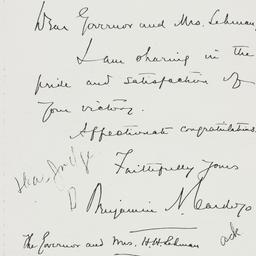 Dear Governor and Mrs. Lehman,
I am sharing in the
pride and satisfaction of
your victory.
Affectionate congratulations.
Faithfully Yours
Benjamin N. Cardozo
The Governor and Mrs. H.H. Lehman
ask